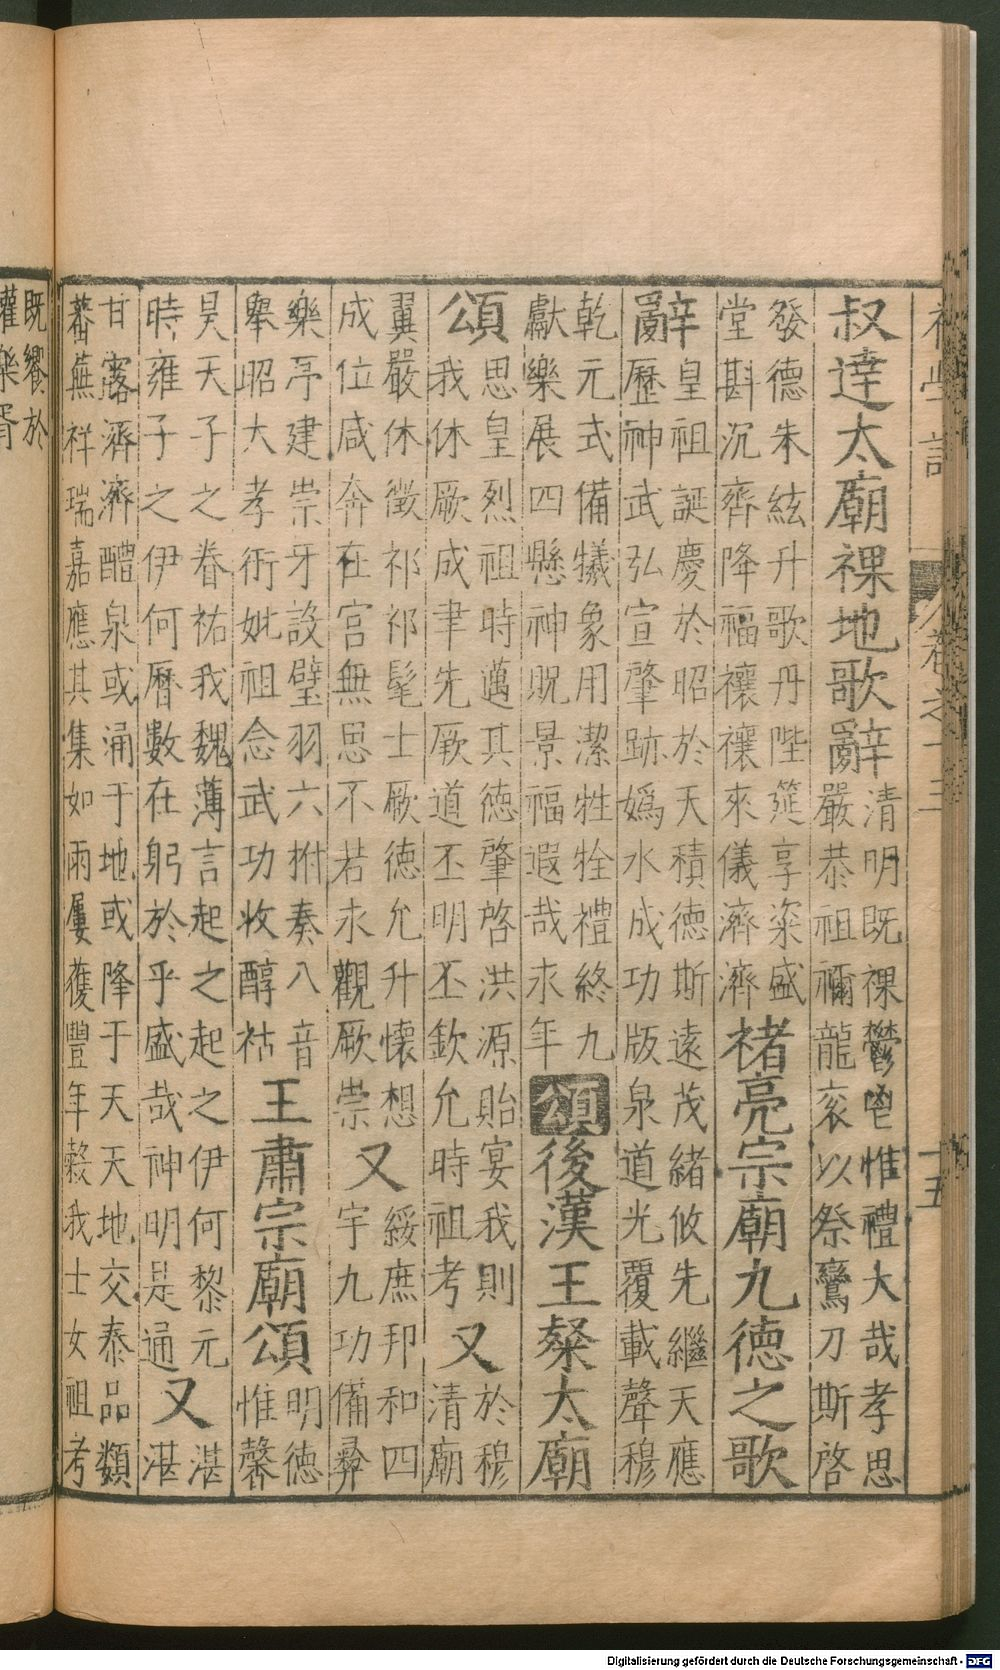 叔達太廟祼地歌辭清明既祼鬱鬯惟禮大哉孝思
嚴恭祖禰龍衮以祭鸞刀斯啓
發德朱絃升歌丹陛筵享粢盛
堂斟沉齊降福禳禳來儀濟濟
褚亮宗廟九德之歌
辭皇祖誕慶於昭於天積德斯遠茂緒攸先繼天應
歷神武弘宣肇跡嬀水成功版泉道光覆載聲穆
乾元式備犧象用潔牲牷禮終九
獻樂展四懸神貺景福遐哉永年
頌後漢王粲太廟
頌思皇烈祖時邁其德肇啓洪源貽宴我則
我休厥成聿先厥道丕明丕欽允時祖考
又於穆
清廟
翼嚴休徵祁祁髦士厥德允升懷想
成位咸奔在宮無思不若永觀厥崇
又綏庶邦和四
宇九功備彝
樂亭建崇牙設璧羽六拊奏八音
舉昭大孝衎妣祖念武功收醇祜
王肅宗廟頌明德
惟馨
昊天子之眷祐我魏薄言起之起之伊何黎元
時雍子之伊何曆數在躬於乎盛哉神明是通
又湛
湛
甘露濟濟醴泉或涌于地或降于天天地交泰品類
蕃蕪祥瑞嘉應其集如雨屢獲豐年穀我士女祖考
既饗於